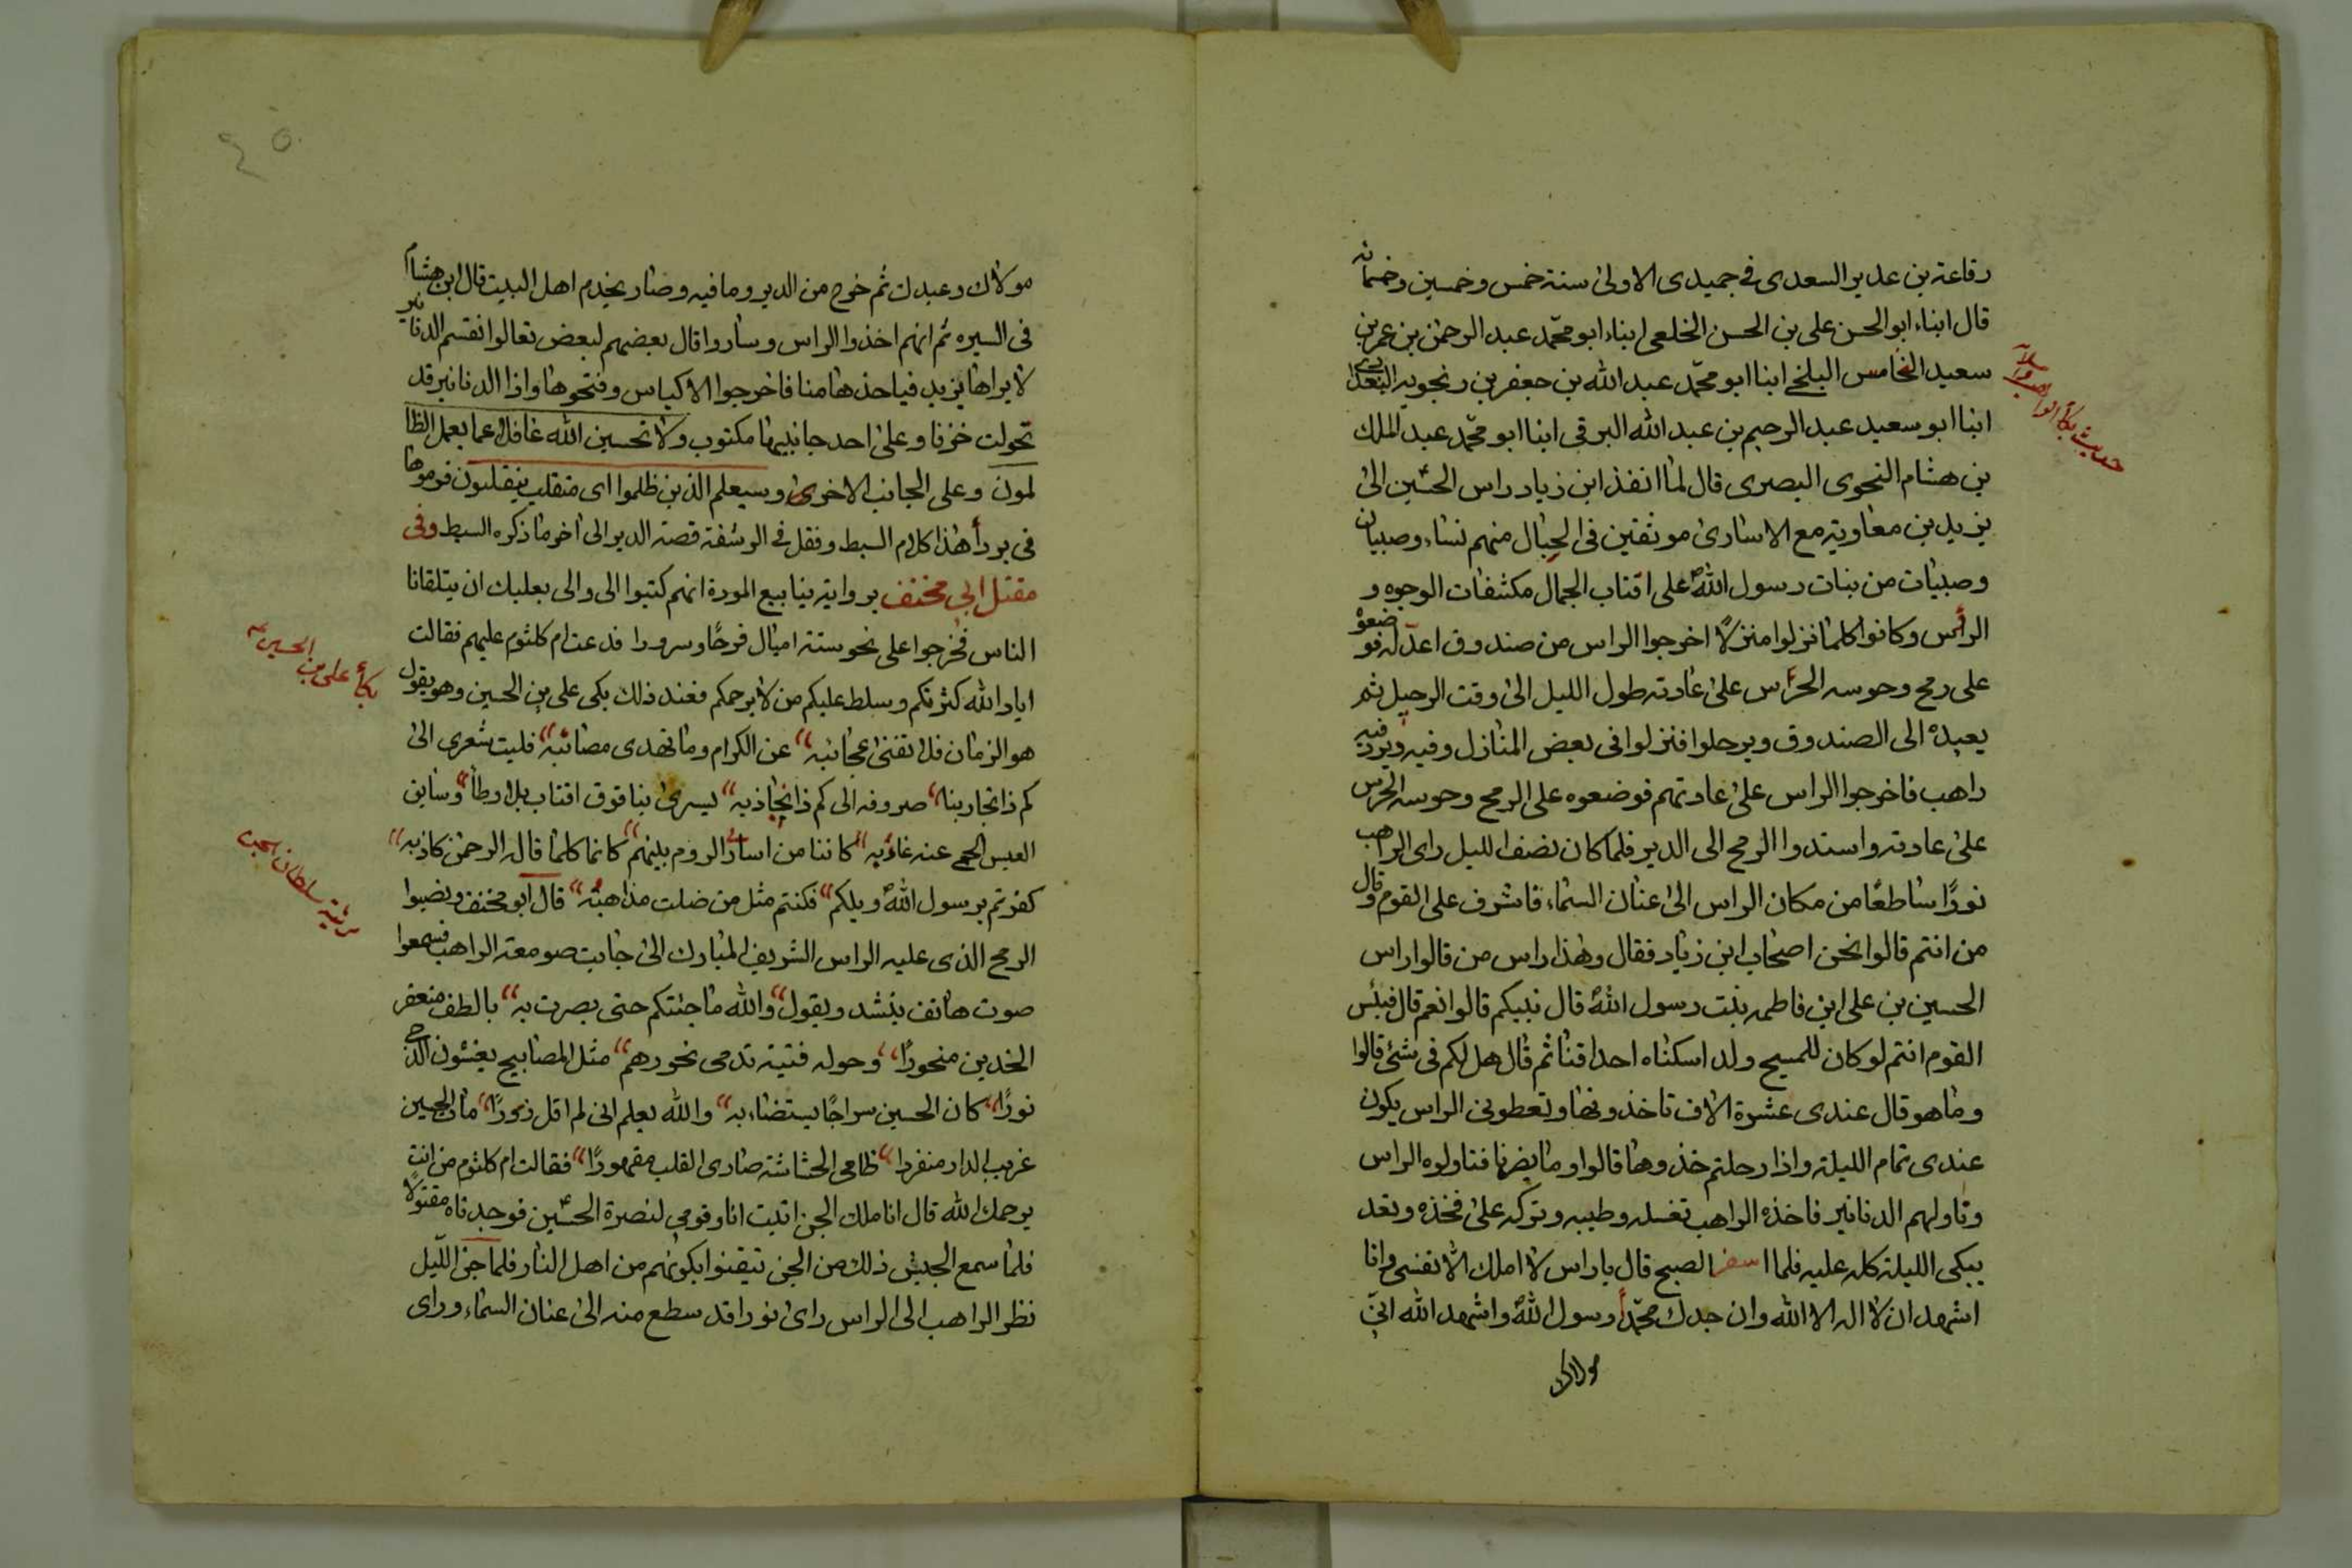 رفاعة بن عدير السعدى فى جميدى الاولى سنة خمس وخمسين وخمسمائه
قال ابناء ابوالحسن على بن الحسن الخلعى ابناء ابو محمّد عبد الرحمن بن عمر بن
سعيد النخامس البلخى ابنا ابو محمّد عبد الله بن جعفر بن رنجويه البغدادى
ابنا ابو سعيد عبد الرحيم بن عبد الله البرقى ابنا ابو محمّد عبد الملك
بن هشام النحوى البصرى قال لما انفذ ابن زياد راس الحسين الى
يزيد بن معاوية مع الاسارى موثقين فى الحبال منهم نساء وصبيان
وصبيات من بنات رسول الله على اقتاب الجمال مكشفات الوجوه و
الرأس وكانوا كلما نزلوا منزلاً اخرجوا الراس من صندوق اعدّ له فوضعوه
على رمح وحوسه الحرّاس على عادته طول الليل الى وقت الرحيل ثم
يعيده الى الصندوق ويرحلوا فنزلوا فى بعض المنازل وفيه دير فيه
راهب فاخرجوا الراس على عادتهم فوضعوه على الرمح وحوسه الحرس
على عادته واسندوا الرمح الى الدير فلما كان نصف الليل راى الراهب
نورًا ساطعًا من مكان الراس الى عنان السماء فاشرف على القوم وقال
من انتم قالوا نحن اصحاب ابن زياد فقال وهذا راس من قالوا راس
الحسين بن على ابن فاطمه بنت رسول الله قال نبيكم قالوا نعم قال فبئس
القوم انتم لو كان للمسيح ولد اسكناه احداقنا ثم قال هل لكم فى شئ قالوا
وما هو قال عندى عشرة الاف تاخذونها وتعطونى الراس يكون
عندى تمام الليلة واذا رحلتم خذوها قالوا وما يضرنا فناولوه الراس
وناولهم الدنانير فاخذه الراهب تغسله وطيبه وتركه على فخذه وتعد
يبكى الليلة كله عليه فلما اسفر الصبح قال ياراس لا املك الّا نفسى وانا
اشهد ان لا اله الا الله وان جدك محمّداً رسول الله واشهد الله انى
مولاك
حديث بكاء الراهب
مولاك وعبدك ثم خرج من الدير وما فيه وصار يخدم اهل البيت قال ابن هشام
فى السيره ثم انهم اخذوا الراس وساروا قال بعضهم لبعض تعالوا نقسم الدنانير
لا يراها يزيد فياخذها منا فاخرجوا الاكياس وفتحوها واذا الدنانير قد
تحولت خزفا وعلى احد جانبيها مكتوب ولا تحسبن الله غافلا عما يعمل الظا
لمون وعلى الجانب الاخرى وسيعلم الذين ظلموا اى منقلب ينقلبون فرموها
فى بردأ هذا كلام السبط ونقل فى الرشفة قصة الدير الى اخر ما ذكره السبط وفى
مقتل ابى مخنف برواية ينابيع المودة انهم كتبوا الى والى بعلبك ان يتلقانا
الناس فخرجوا على نحو ستة اميال فرحًا وسرورا فدعت ام كلثوم عليهم فقالت
اباد الله كثرتكم وسلط عليكم من لا يرحمكم فعند ذلك بكى على بن الحسين وهو يقول
هو الزمان فلا تفنى عجائبه عن الكرام وما تهدى مصائبه فليت شعرى الى
كم ذا تجاربنا صروفه الى كم ذا نجاذبه يسرى بنا فوق اقتاب بلا وطأ وسابق
العيس الحجى عنه غاربه كاننا من اسارى الروم بينهم كانما كلما قاله الرحمن كاذبه
كفرتم برسول الله ويلكم فكنتم مثل من ضلت مذاهبه قال ابو مخنف ونصبوا
الرمح الذى عليه الراس الشريف المبارك الى جانب صومعة الراهب فسمعوا
صوت هاتف ينشد ويقول والله ما جئتكم حتى بصرت به بالطف منعفر
الخدين منحورًا وحوله فتية تدمى نحورهم مثل المصابيح يغشون الدجى
نورًا كان الحسين سراجًا يستضاء به والله يعلم انى لم اقل زورًا مات الحسين
غريب الدار منفردا ظامى الحشاشة صادى القلب مقهورًا فقالت ام كلثوم من انت
يرحمك الله قال انا ملك الجن اتيت انا وقومى لنصرة الحسين فوجدناه مقتولاً
فلما سمع الجيش ذلك من الجن تيقنوا بكونهم من اهل النار فلما جن الليل
نظر الراهب الى الراس راى نورا قد سطع منه الى عنان السماء وراى
بكاء على بن الحسين
مرثية سلطان الجن
٤٥